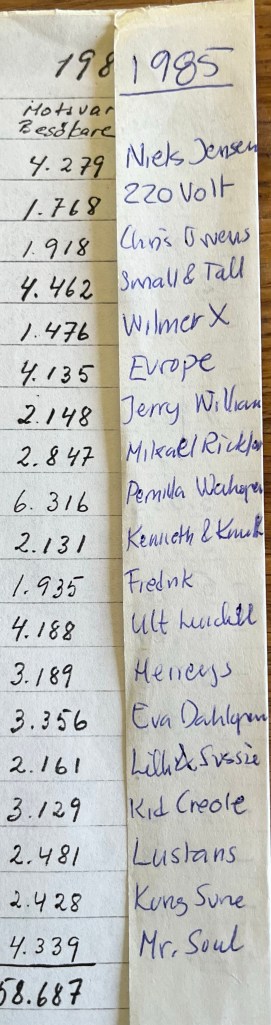 198 1985
Motsvar
Besökare
4.279 Niels Jensen
1.768 220 Volt
1.918 Chris Owens
4.462 Small & Tall
1.476 Wilmer X
4.135 Europe
2.148 Jerry William
2.847 Mikael Rickfor
6.316 Pernilla Wahlgren
2.131 Kenneth &
1.935 Fredrik
4.188 Ulf Lundell
3.189 Herreys
3.356 Eva Dahlgren
2.161 Lili & Sussie
3.129 Kid Creole
2.481 Lustans
2.428 Kung Sune
4.339 Mr. Soul
58.687